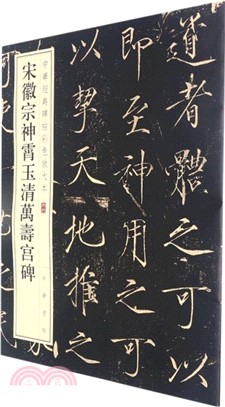 道者體之可以
即至神用之可
以挈天地推之
中華經典碑帖彩色放大本
宋徽宗神霄玉清萬壽宮碑
中華書局